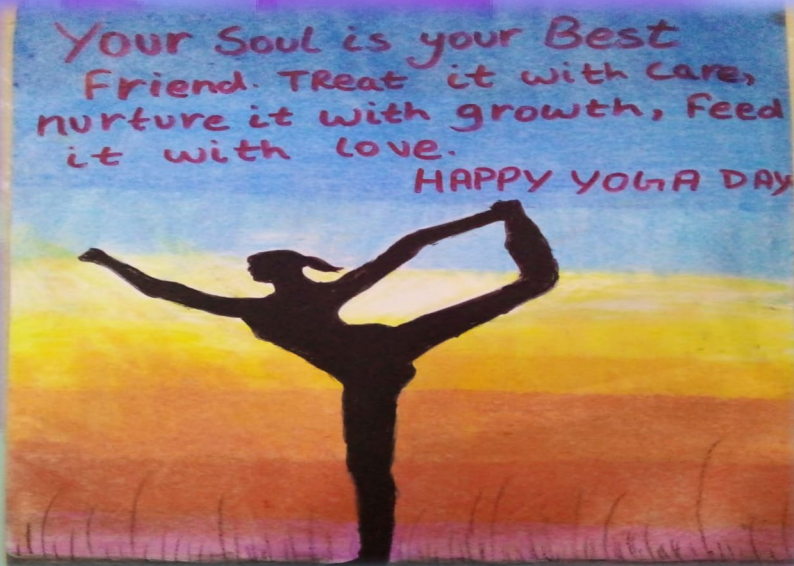 Your Soul is your Best
Friend. TReat it with Care,
nurture it with growth, Feed
it with love.
HAPPY YOGA DAY